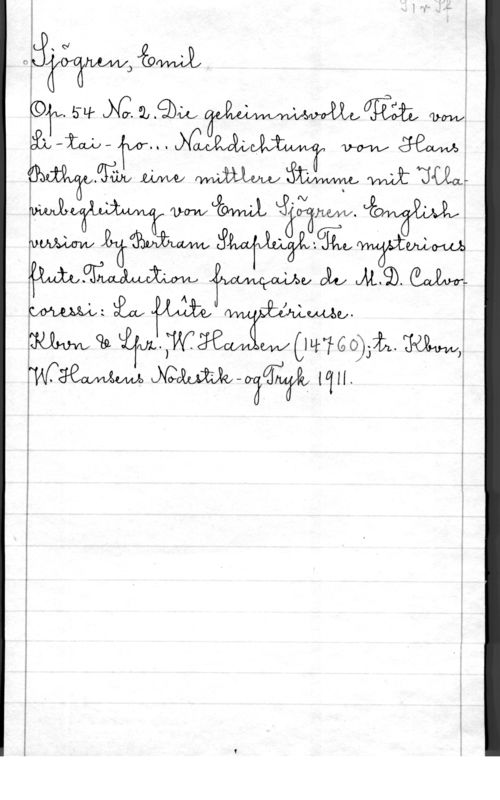 Sjögren, Emil
Op. 54 No. 2. Die geheimnisvolle Flöte von
Li-tai-po... Nachdichtung von Hans
Bethge. Für eine mittlere Stimme mit Kla-
vierbegleitung von Emil Sjögren. English
version by Bertram Shapleigh: The mysterious
flute. Traduction française de M. D. Calvo-
coressi: La flûte mystérieuse.
Kbvn & Lpz., W. Hansen (14760); tr. Kbvn,
W. Hansens Nodestik- og Tryk 1911.